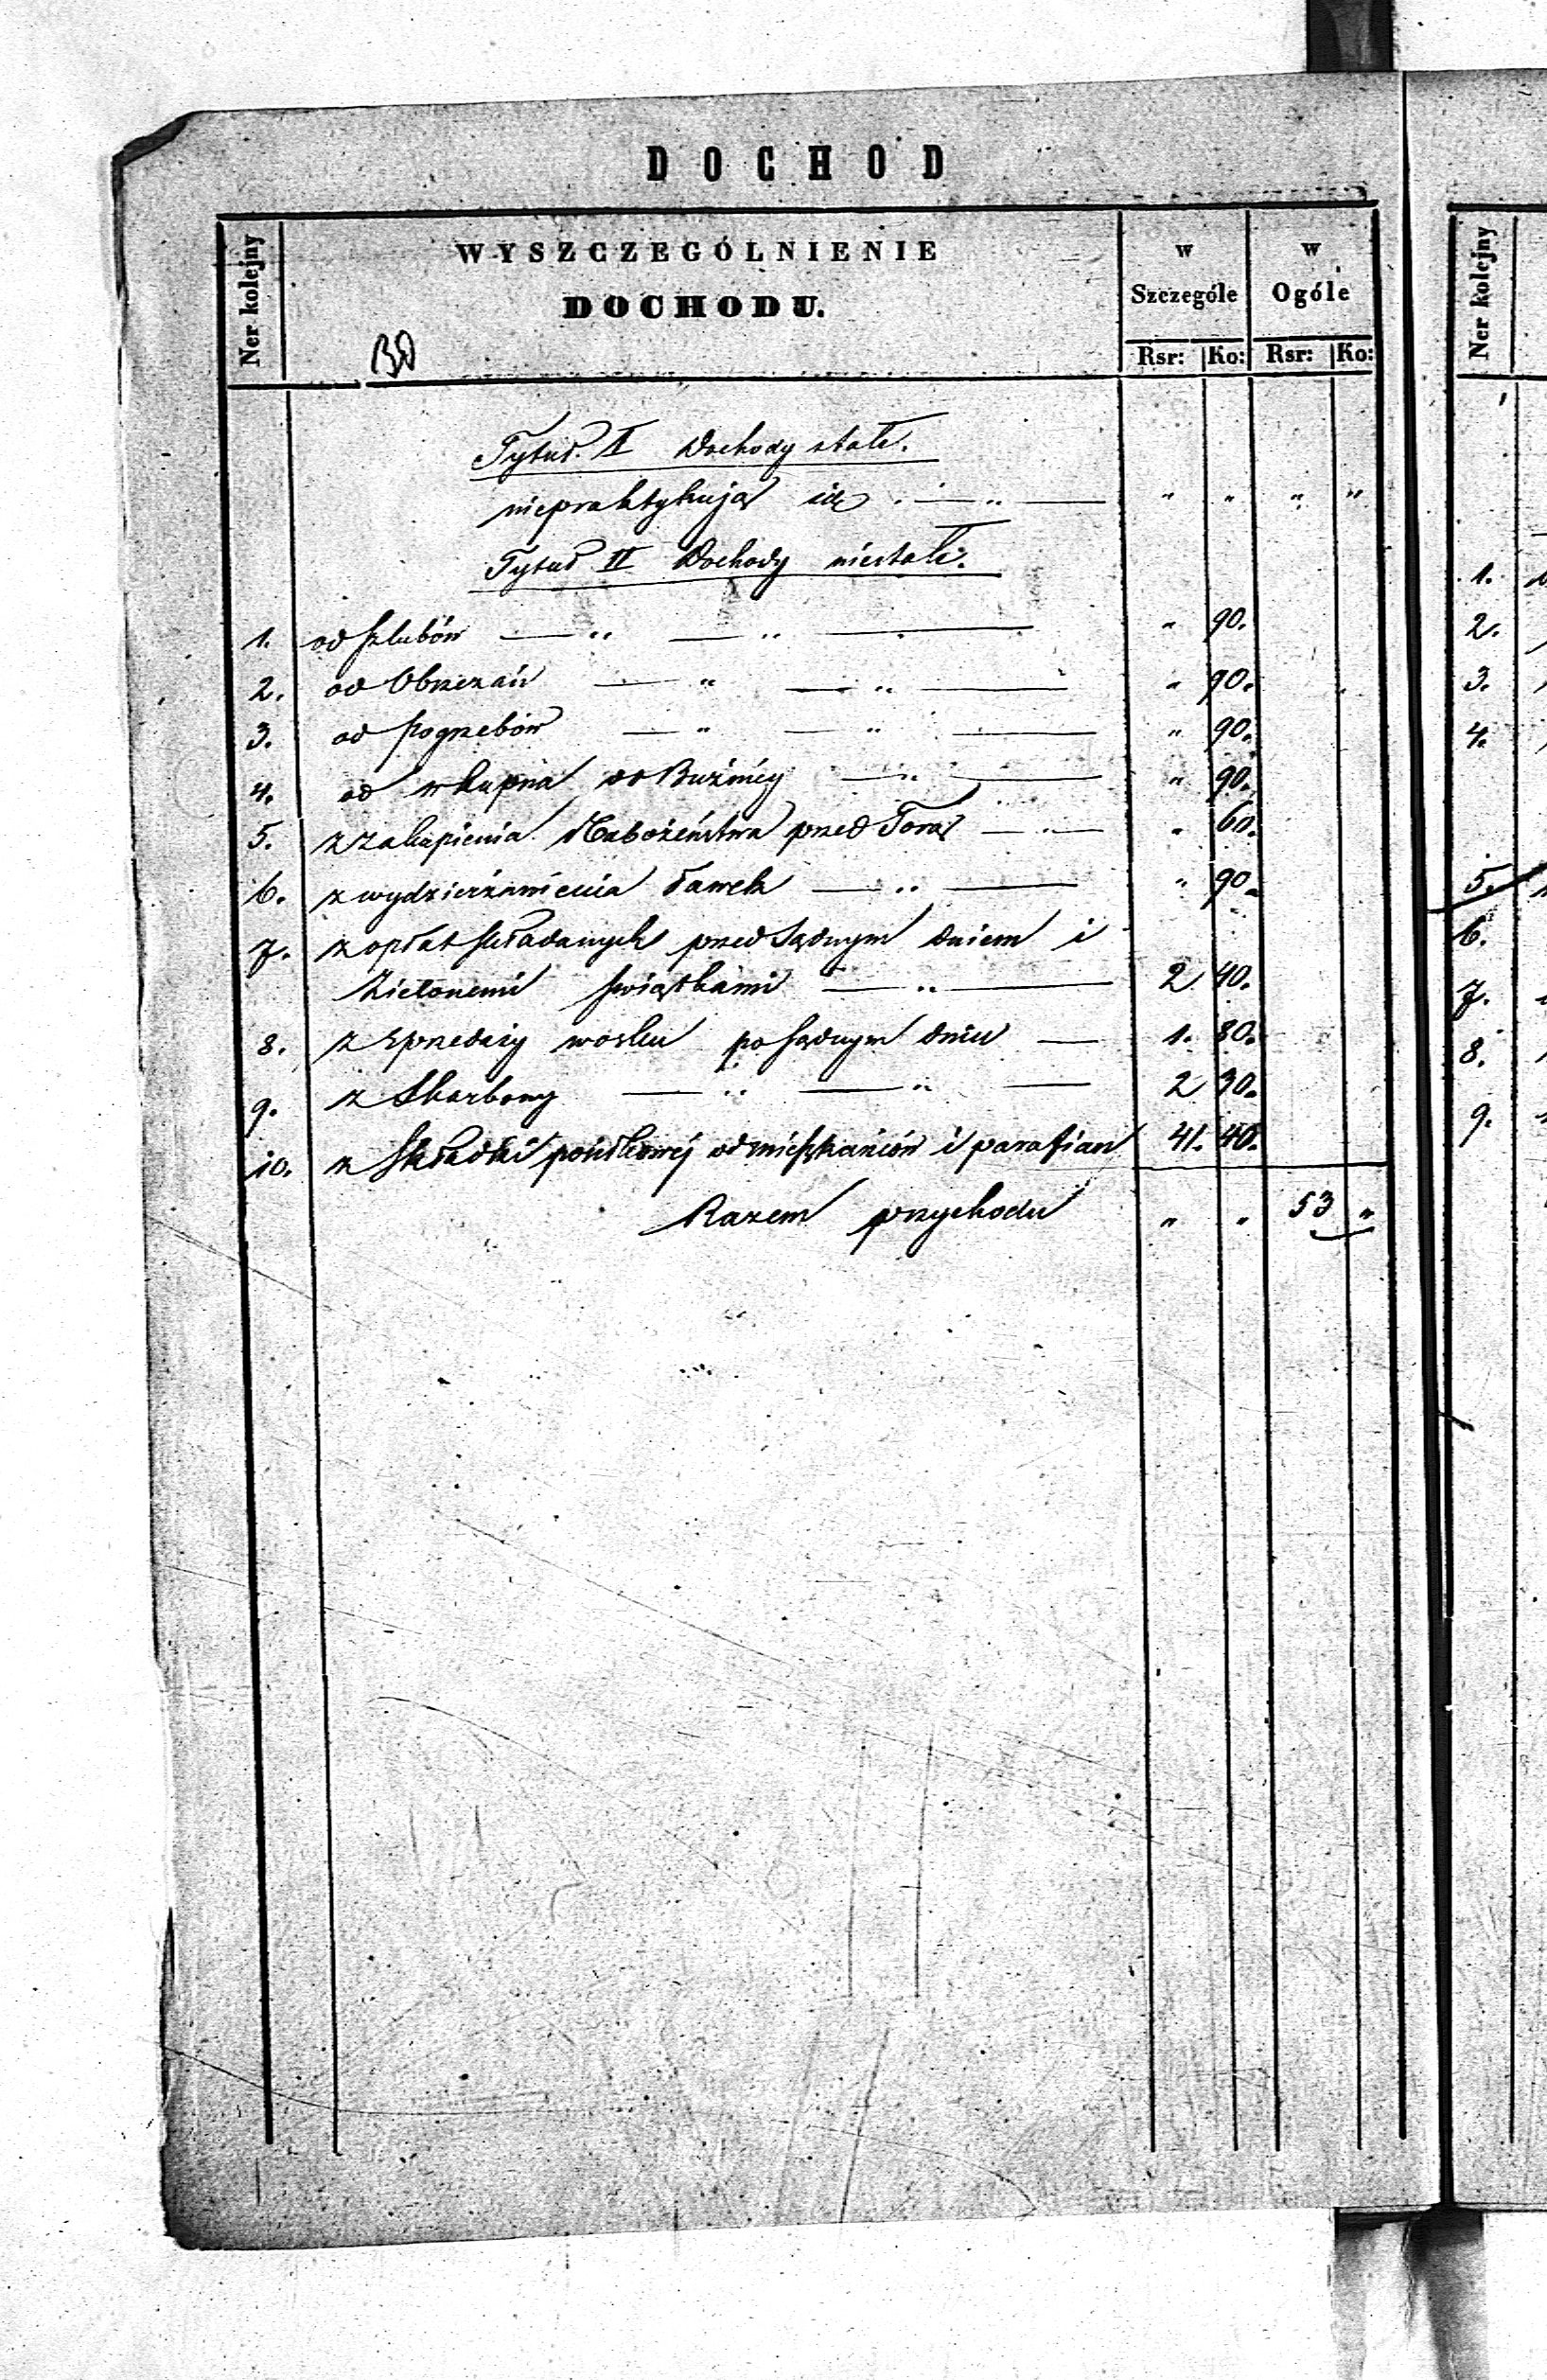 DOCHOD
Ner kolejny
WYSZCZEGÓLNIENIE
DOCHODU.
w Szczególe
w Ogóle
Rsr: Ko: Rsr: Ko:
Ner kolejny
Tytuł I Dochody stałe.
niepraktykują się . — " — " " " "
Tytuł II Dochody niestałe.
1. od szlubów — " — " — " 90.
2. od Obrzezań — " — " — " 90.
3. od pogrzebów — " — " — " 90.
4. od wkupna do Buźnicy — " — " 90.
5. z zakupienia Nabożeństwa przed Torą — " — " 60.
6. z wydzierżawienia ławek — " — " 90.
7. z opłat składanych przed Sądnym dniem i
Zielonemi świątkami — " — 2 40.
8. z Sprzedaży wosku po sądnym dniu — 1. 80.
9. z Skarbony — " — " — 2 30.
10. z Składki posiłkowej od mieszkańców i parafian 41. 40.
Razem przychodu " " 53 "
1.
2.
3.
4.
5.
6.
7.
8.
9.